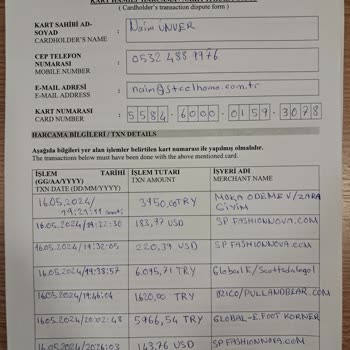 ( Cardholder's transaction dispute form )
KART SAHİBİ AD-
SOYAD
CARDHOLDER'S NAME
Naim ÜNVER
CEP TELEFON
NUMARASI
MOBILE NUMBER
0532 488 9976
E-MAIL ADRESİ
E-MAIL ADDRESS
naim@steelhome.com.tr
KART NUMARASI
CARD NUMBER
5584-6000-0159-3078
HARCAMA BİLGİLERİ / TXN DETAILS
Aşağıda bilgileri yer alan işlemler belirtilen kart numarası ile yapılmış olmalıdır.
The transactions below must have been done with the above mentioned card.
İŞLEM TARİHİ
(GG/AA/YYYY)
TXN DATE (DD/MM/YYYY)
İŞLEM TUTARI
TXN AMOUNT
İŞYERİ ADI
MERCHANT NAME
16.05.2024/
19:21:11
3950,00 TRY
MOKA ODEME V/ZARA
GİYİM
16.05.2024/19:22:30
183,97 USD
SP FASHIONNOVA.COM
16.05.2024/19:32:05
220,39 USD
SP.FASHIONNOVA.COM
16.05.2024/19:38:57
6.095,71 TRY
16.05.2024/19:46:04
1620,00 TRY
/PULLANDBEAR.COM
16.05.2024/20:02:48
5966,54 TRY
GLOBAL-E.FOOT KORNER
16.05.2024/20:26:03
143,76 USD
SP.FASHIONNOVA.COM